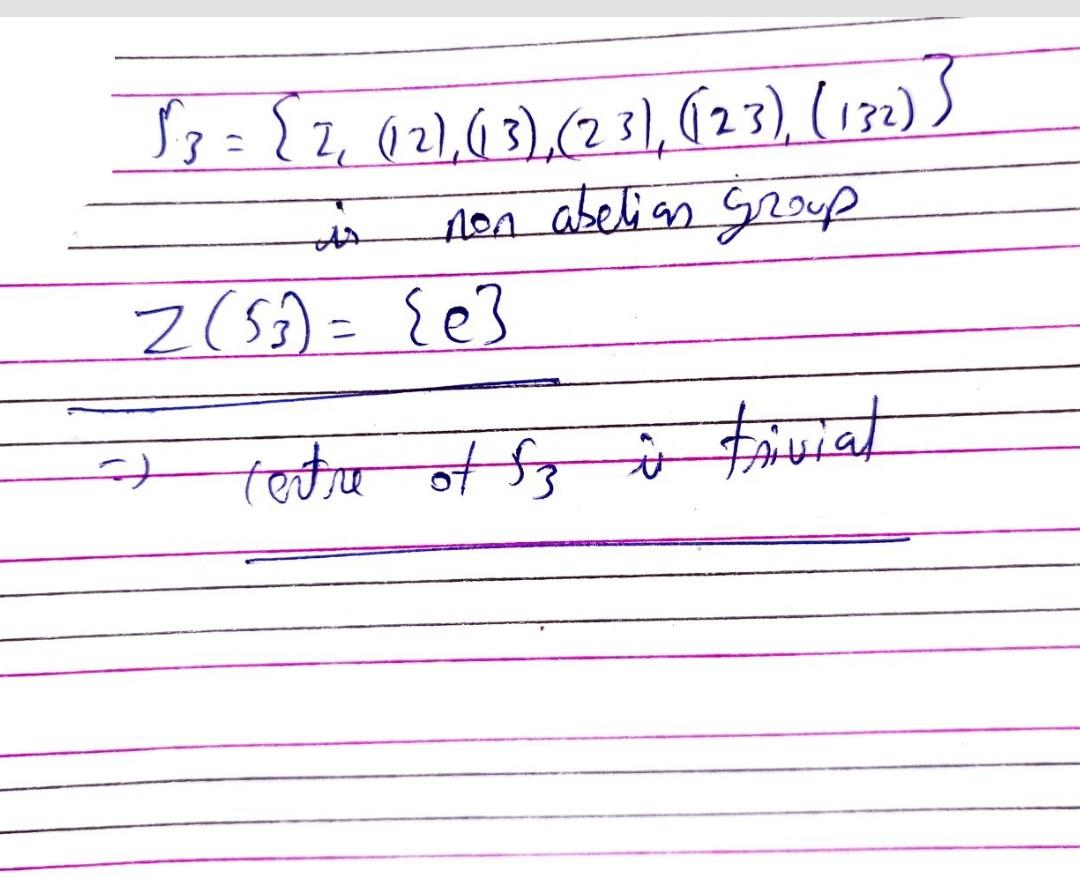 S3 = { I, (12), (13), (23), (123), (132) }
is non abelian group
Z(S3) = {e}
=) centre of S3 is trivial